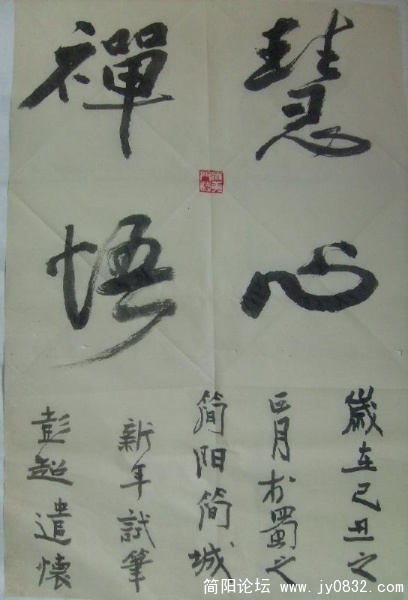 慧心
禪悟
歲在己丑之
正月於蜀之
简阳简城
新年試筆
彭超遣懷
简阳论坛 www.jy0832.com